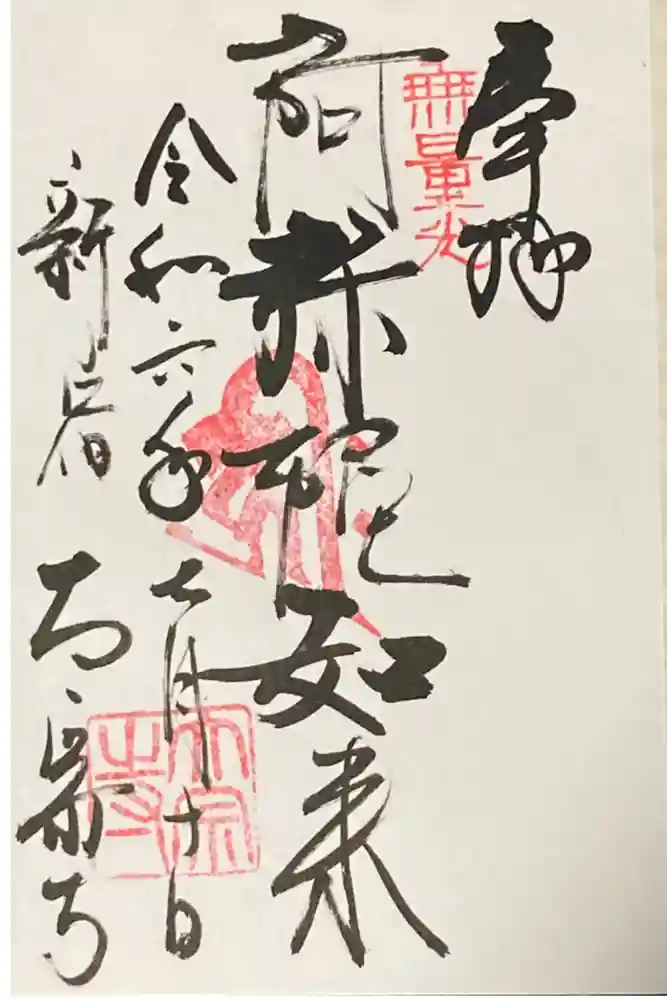 奉拝
無量光
阿弥陀如来
令和六年七月十日
新宿 太宗寺